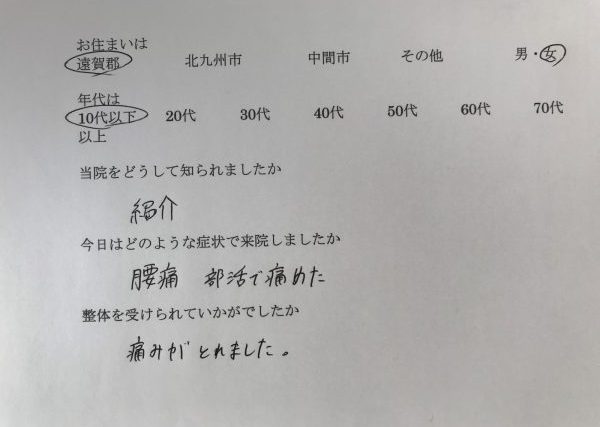 お住まいは
遠賀郡 北九州市 中間市 その他 男・女
年代は
10代以下 20代 30代 40代 50代 60代 70代
以上
当院をどうして知られましたか
紹介
今日はどのような症状で来院しましたか
腰痛 部活で痛めた
整体を受けられていかがでしたか
痛みがとれました。